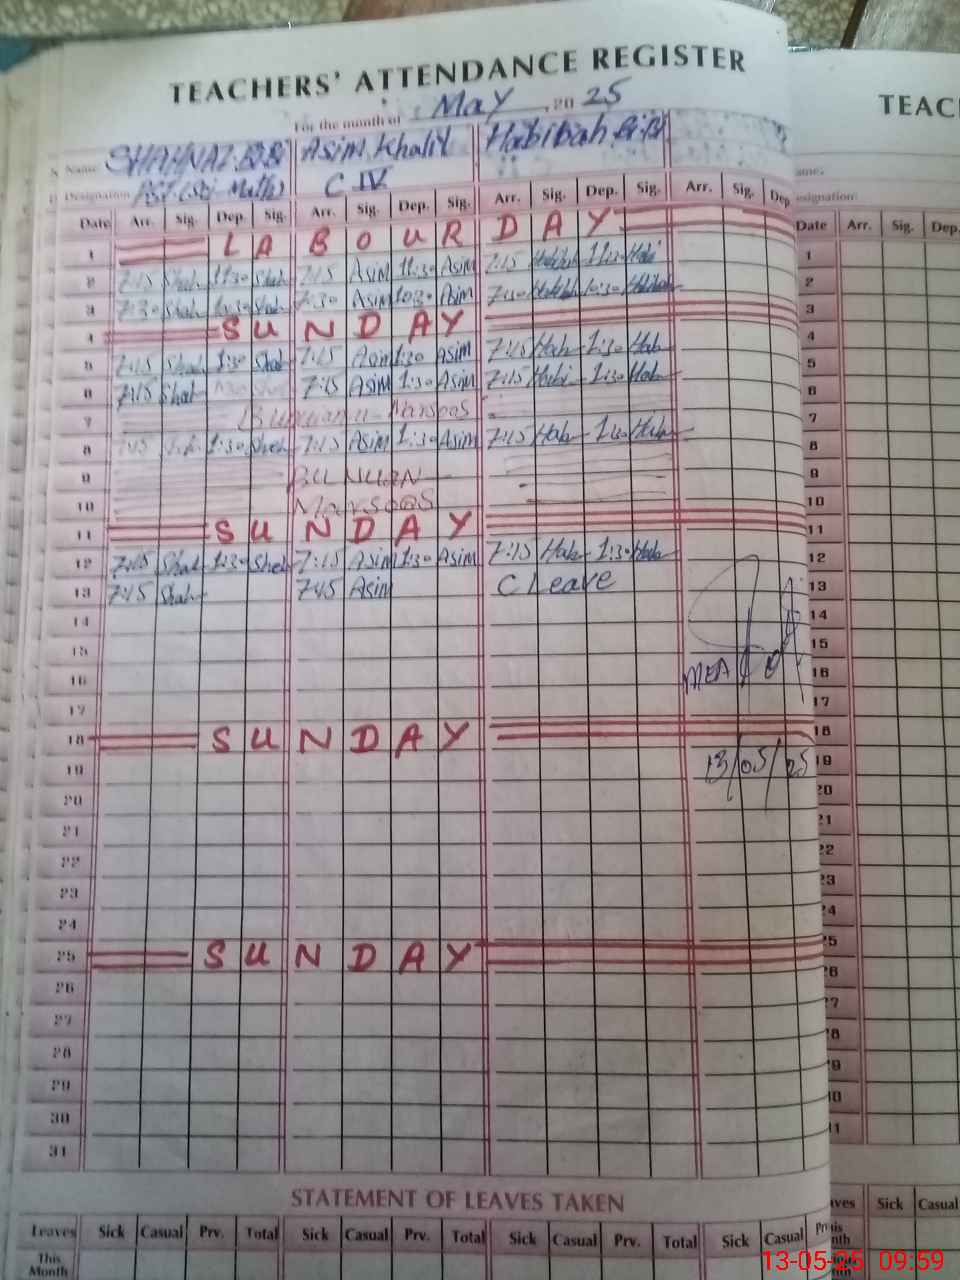 TEACHERS' ATTENDANCE REGISTER
For the month of May, 20 25
Name SHAHNAZ BiBi Asim Khalil Habibah Bibi
Designation PST (Sci-Math) C.IV
Date Arr. Sig. Dep. Sig. Arr. Sig. Dep. Sig. Arr. Sig. Dep. Sig. Arr. Sig. Dep.
1 LABOUR DAY
2 7:15 Shah 11:30 Shah 7:15 Asim 11:30 Asim 7:15 11:30 Habi
3 7:30 Shah 10:30 Shah 7:30 Asim 10:30 Asim 7:30 10:30
4 SUNDAY
5 7:15 Shah 1:30 Shah 7:15 Asim 1:30 Asim 7:15 Hab 1:30 Hab
6 7:15 Shah 7:15 Asim 1:30 Asim 7:15 Habi 1:30 Hab
7 Marsoos
8 1:30 Shah 7:15 Asim 1:30 Asim 7:15 Hab 1:30 Hab
9 BUNYAN
10 Marsoos
11 SUNDAY
12 7:15 Shah 1:30 Shah 7:15 Asim 1:30 Asim 7:15 Hab 1:30 Hab
13 7:15 Shah 7:45 Asim C Leave
14
15
16 MEA
17
18 SUNDAY
19 13/05/25
20
21
22
23
24
25 SUNDAY
26
27
28
29
30
31
STATEMENT OF LEAVES TAKEN
Leaves Sick Casual Prv. Total Sick Casual Prv. Total Sick Casual Prv. Total Sick Casual
This Month
TEAC
Date Arr. Sig. Dep.
1
2
3
4
5
6
7
8
9
10
11
12
13
14
15
16
17
18
19
20
Sick Casual
13-05-25 09:59